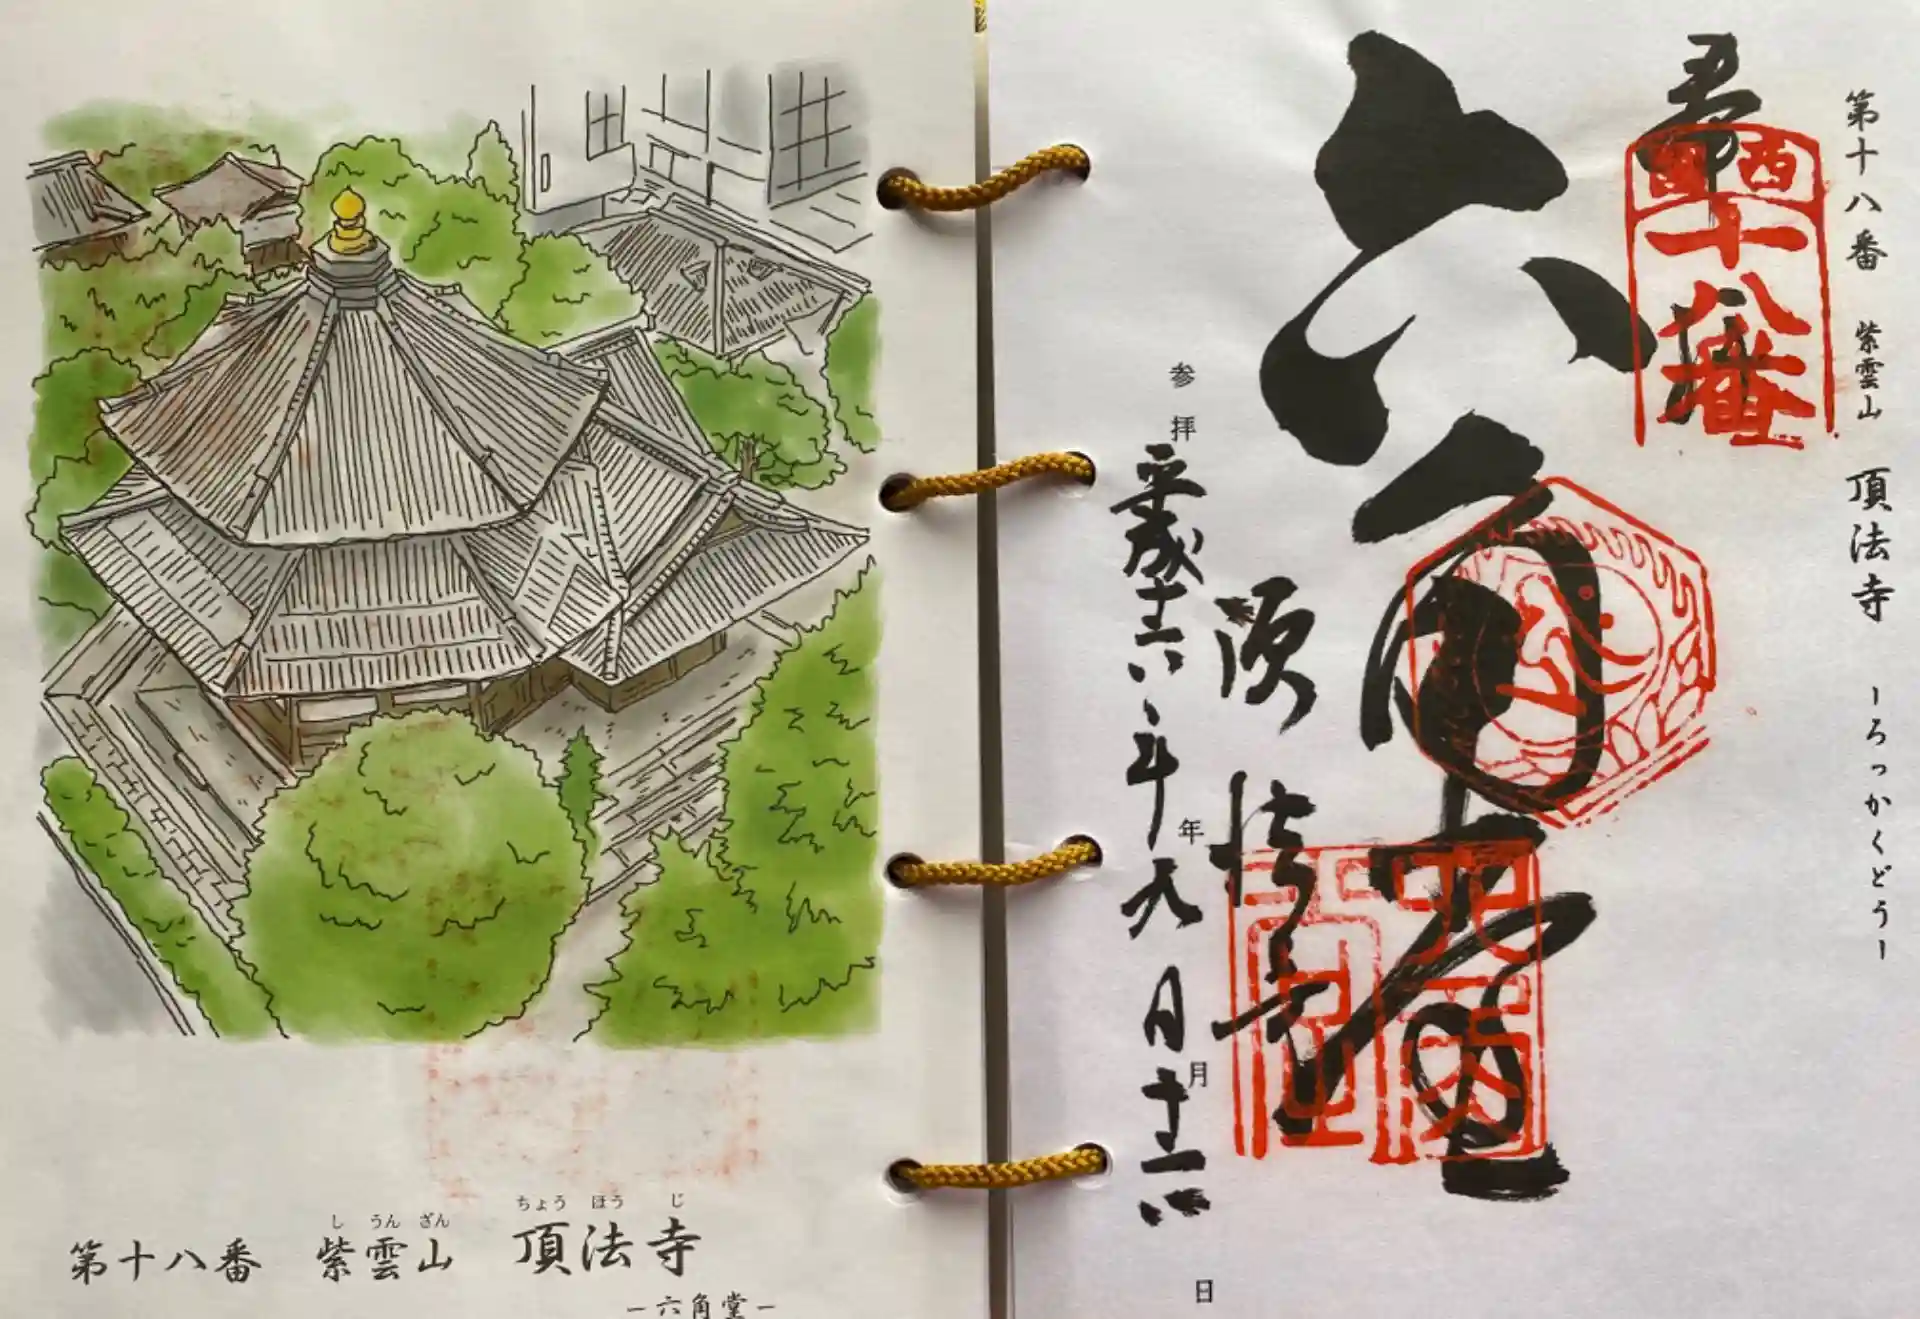 し うん ざん ちょう ほう じ
第十八番 紫雲山 頂法寺
ー六角堂ー
第十八番 紫雲山 頂法寺 ーろっかくどうー
西国
十八番
六角堂
参拝 年 月 日
平成 年九月